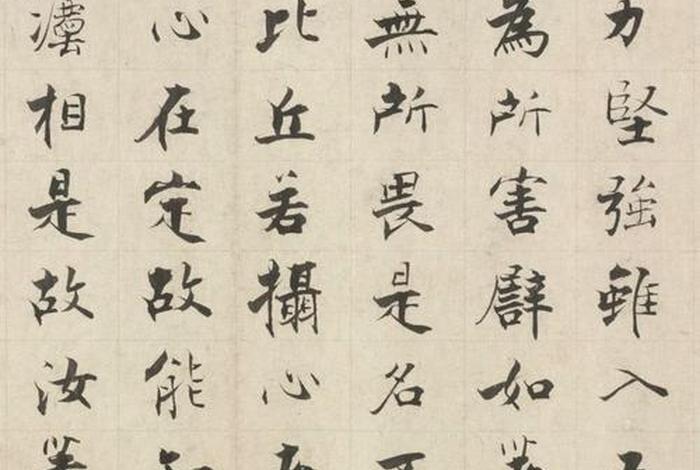 力堅強雖入
為所害譬如
無所畏是名
比丘若攝心
心在定故能
灋相是故汝